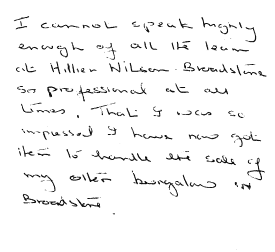 I cannot speak highly
enough of all the team
at Hillier Wilson. Broadstone
so professional at all
times. That I was so
impressed I have now got
them to handle the sale of
my other bungalow in
Broadstone.